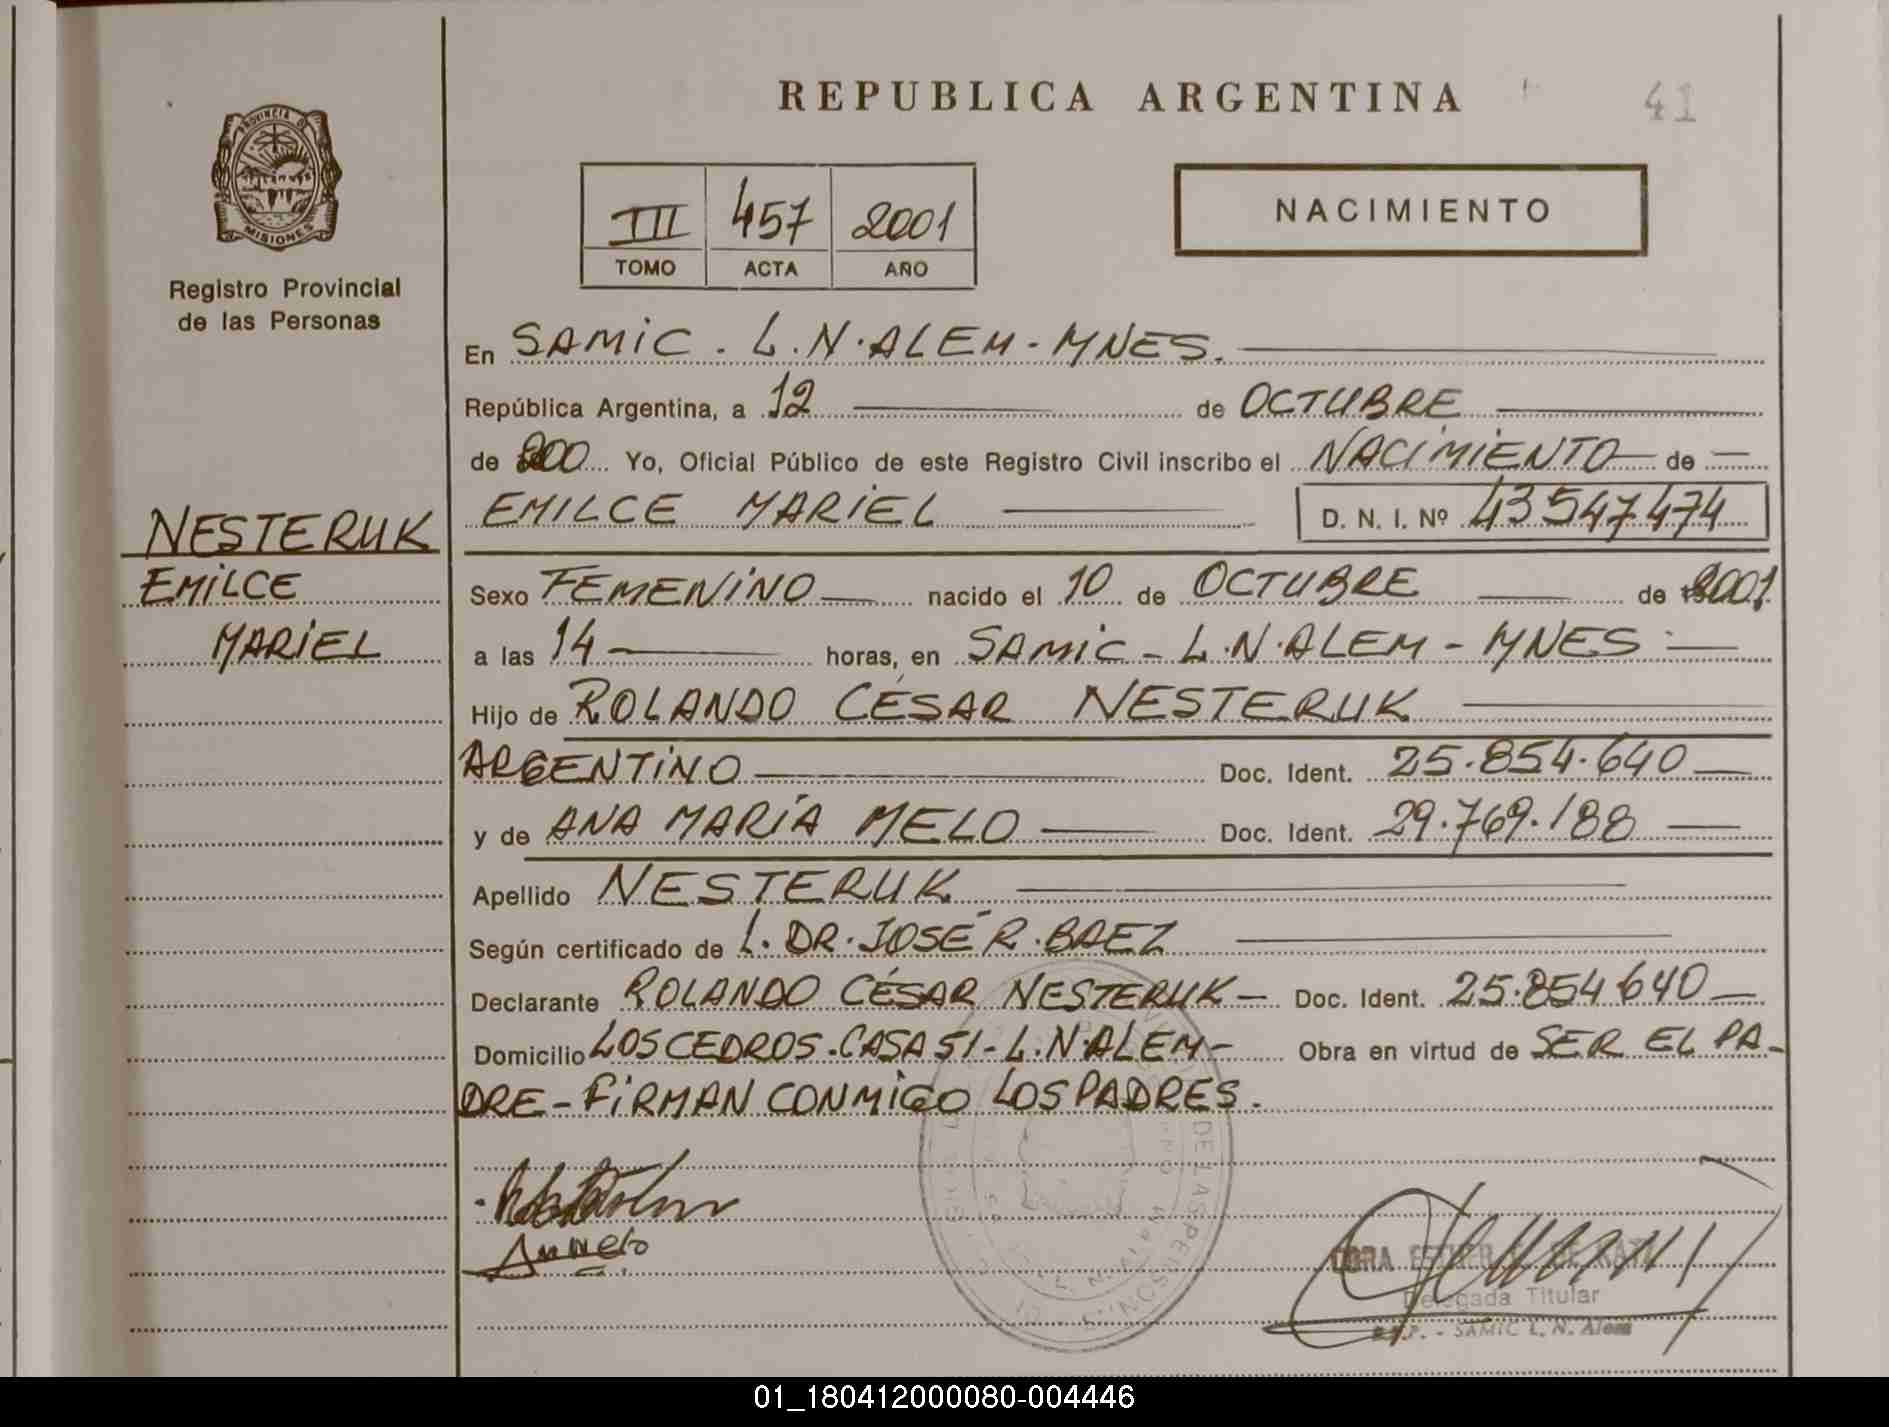 REPUBLICA ARGENTINA
41
PROVINCIA DE
MISIONES
Registro Provincial
de las Personas
III 457 2001
TOMO ACTA AÑO
NACIMIENTO
NESTERUK
EMILCE
MARIEL
En SAMIC. L.N.ALEM-MNES.
República Argentina, a 12 de OCTUBRE
de 200 Yo, Oficial Público de este Registro Civil inscribo el NACIMIENTO de
EMILCE MARIEL D. N. I. Nº 43547474
Sexo FEMENINO nacido el 10 de OCTUBRE de 2001
a las 14 horas, en SAMIC - L.N.ALEM - MNES
Hijo de ROLANDO CÉSAR NESTERUK
ARGENTINO Doc. Ident. 25.854.640
y de ANA MARÍA MELO Doc. Ident. 29.769.188
Apellido NESTERUK
Según certificado de L. DR. JOSÉ R. BAEZ
Declarante ROLANDO CÉSAR NESTERUK - Doc. Ident. 25.854640
Domicilio LOS CEDROS.CASA 51-L.N.ALEM- Obra en virtud de SER EL PA-
DRE-FIRMAN CONMIGO LOS PADRES.
ESTHER
Delegada Titular
SAMIC L. N. Alem
01_180412000080-004446